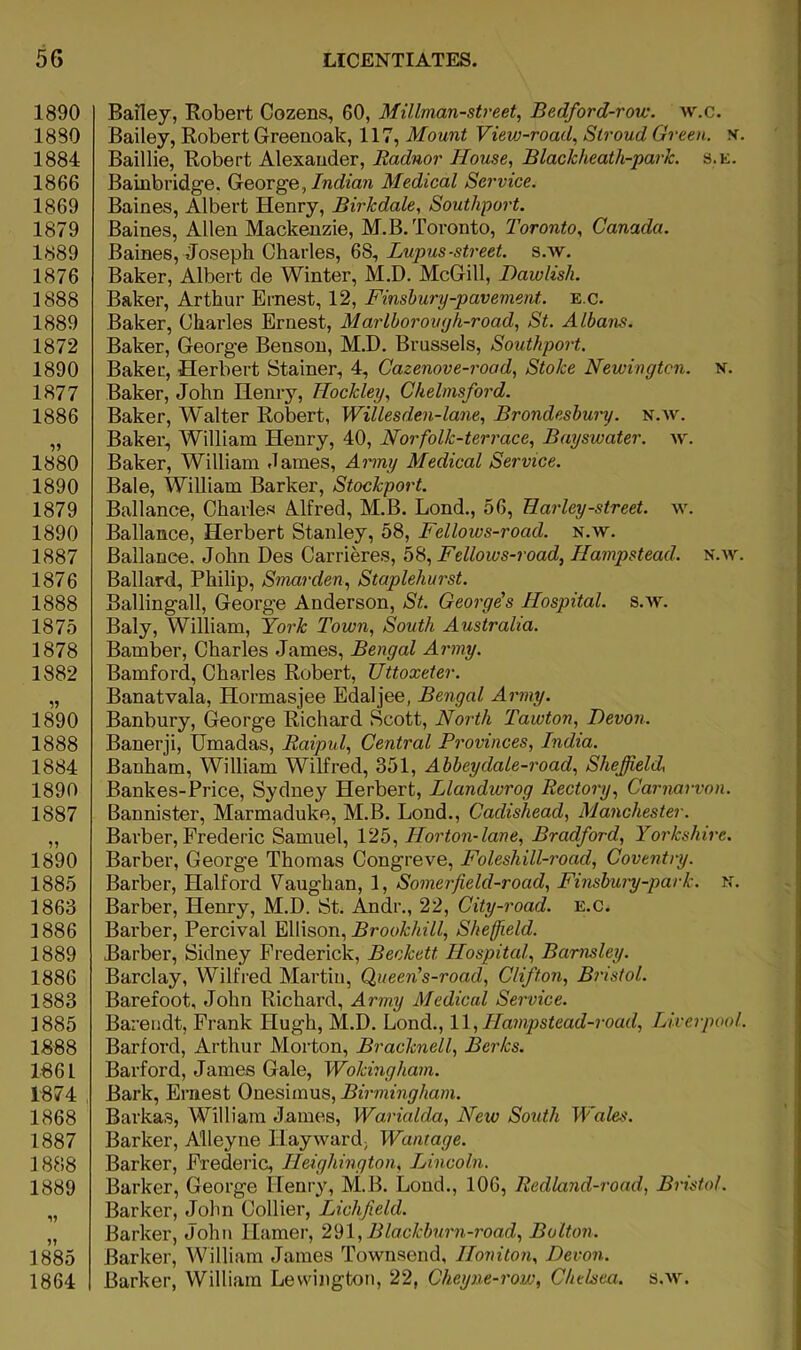 56 LICENTIATES.
1890 Bailey, Robert Cozens, 60, Millman-street, Bedford-row. w.c.
1880 Bailey, Robert Greenoak, 117, Mount View-road, Stroud Green. N.
1884 Baillie, Robert Alexander, Radnor House, Blackheath-park. s.e.
1866 Bainbridge, George, Indian Medical Service.
1869 Baines, Albert Henry, Birkdale, Southport.
1879 Baines, Allen Mackenzie, M.B. Toronto, Toronto, Canada.
1889 Baines, Joseph Charles, 68, Lupus-street. s.w.
1876 Baker, Albert de Winter, M.D. McGill, Dawlish.
1888 Baker, Arthur Ernest, 12, Finsbury-pavement. E.C.
1889 Baker, Charles Ernest, Marlborough-road, St. Albans.
1872 Baker, George Benson, M.D. Brussels, Southport.
1890 Baker, Herbert Stainer, 4, Cazenove-road, Stoke Newington. N.
1877 Baker, John Henry, Hockley, Chelmsford.
1886 Baker, Walter Robert, Willesden-lane, Brondesbury. N.W.
„ Baker, William Henry, 40, Norfolk-terrace, Bayswater. w.
1880 Baker, William James, Army Medical Service.
1890 Bale, William Barker, Stockport.
1879 Ballance, Charles Alfred, M.B. Lond., 56, Harley-street. w.
1890 Ballance, Herbert Stanley, 58, Fellows-road. N.W.
1887 Ballance, John Des Carrières, 58, Fellows-road, Hampstead. N.W.
1876 Ballard, Philip, Smarden, Staplehurst.
1888 Ballingall, George Anderson, St. George's Hospital. s.w.
1875 Baly, William, York Town, South Australia.
1878 Bamber, Charles James, Bengal Army.
1882 Bamford, Charles Robert, Uttoxeter.
„ Banatvala, Hormasjee Edaljee, Bengal Army.
1890 Banbury, George Richard Scott, North Tawton, Devon.
1888 Banerji, Umadas, Raipul, Central Provinces, India.
1884 Banham, William Wilfred, 351, Abbeydale-road, Sheffield.
1890 Bankes-Price, Sydney Herbert, Llandwrog Rectory, Carnarvon.
1887 Bannister, Marmaduke, M.B. Lond., Cadishead, Manchester.
„ Barber, Frederic Samuel, 125, Horton-lane, Bradford, Yorkshire.
1890 Barber, George Thomas Congreve, Foleshill-road, Coventry.
1885 Barber, Halford Vaughan, 1, Somerfield-road, Finsbury-park. N.
1863 Barber, Henry, M.D. St. Andr., 22, City-road. E.C.
1886 Barber, Percival Ellison, Brookhill, Sheffield.
1889 Barber, Sidney Frederick, Beckett Hospital, Barnsley.
1886 Barclay, Wilfred Martin, Queen's-road, Clifton, Bristol.
1883 Barefoot, John Richard, Army Medical Service.
1885 Barendt, Frank Hugh, M.D. Lond., 11, Hampstead-road, Liverpool.
1888 Barford, Arthur Morton, Bracknell, Berks.
1861 Barford, James Gale, Wokingham.
1874 Bark, Ernest Onesimus, Birmingham.
1868 Barkas, William James, Warialda, New South Wales.
1887 Barker, Alleyne Hayward, Wantage.
1888 Barker, Frederic, Heighington, Lincoln.
1889 Barker, George Henry, M.B. Lond., 106, Redland-road, Bristol.
„ Barker, John Collier, Lichfield.
„ Barker, John Hamer, 291, Blackburn-road, Bolton.
1885 Barker, William James Townsend, Honiton, Devon.
1864 Barker, William Lewington, 22, Cheyne-row, Chelsea. s.w.